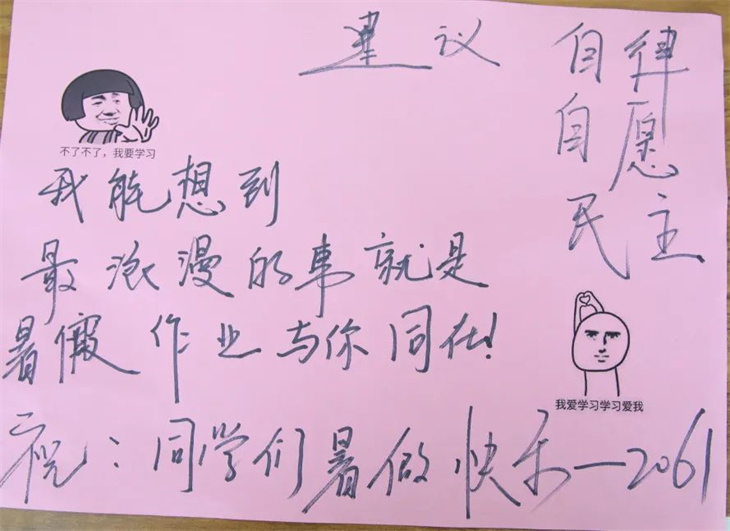 建议
自律
自愿
民主
不了不了，我要学习
我能想到
最浪漫的事就是
暑假作业与你同在!
我爱学习学习爱我
祝：同学们暑假快乐—2061